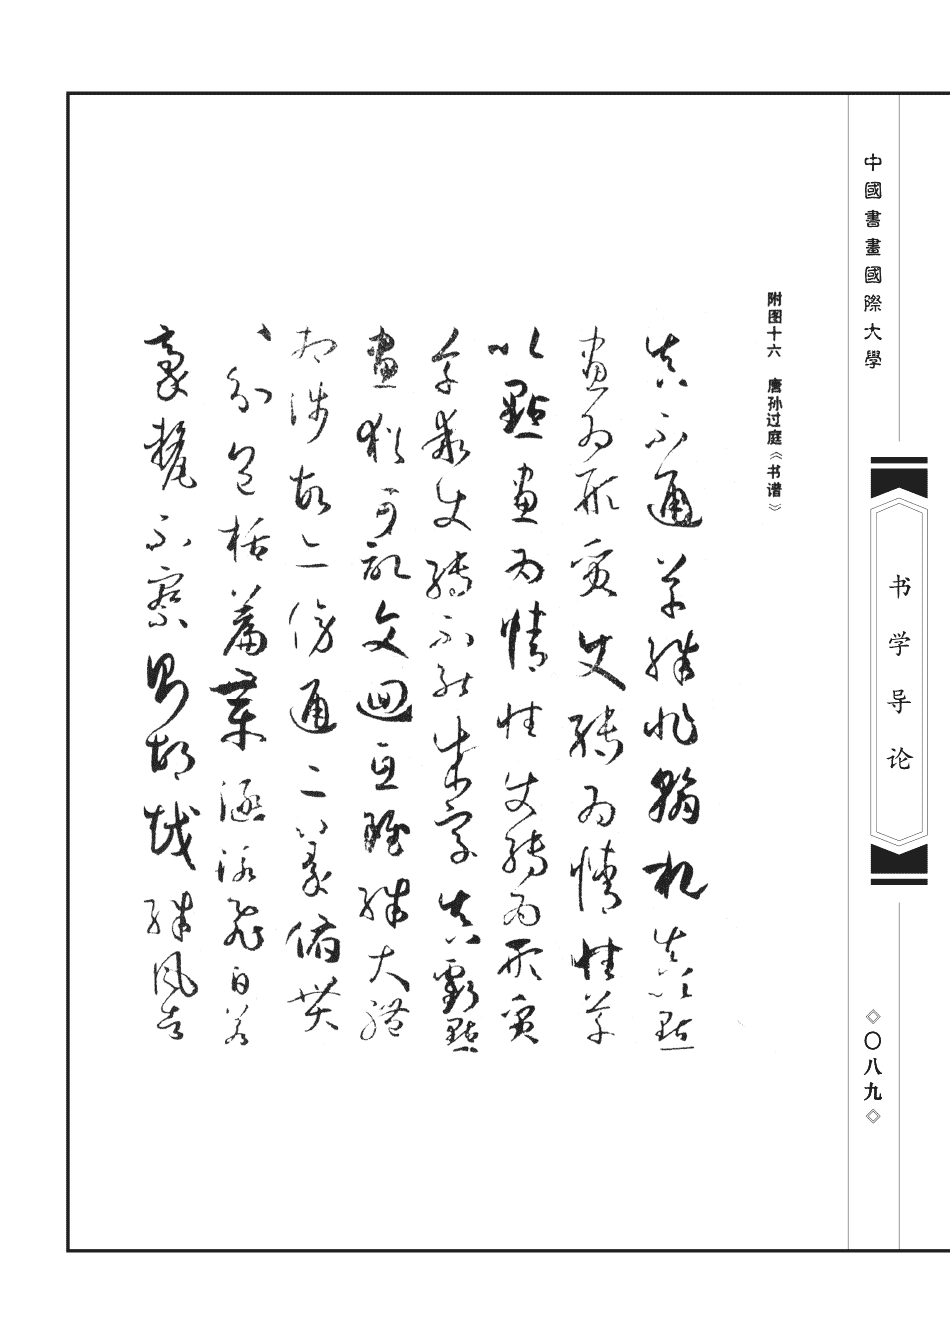 中國書畫國際大學
书学导论
〇八九
附图十六 唐孙过庭《书谱》
真不通草殊非翰札真以點
畫為形質使轉為情性草
以點畫為情性使轉為形質
草乖使轉不能成字真虧點
畫猶可記文迴互雖殊大體
相涉故亦傍通二篆俯貫
八分包括篇章涵泳飛白若
毫釐不察則胡越殊風者